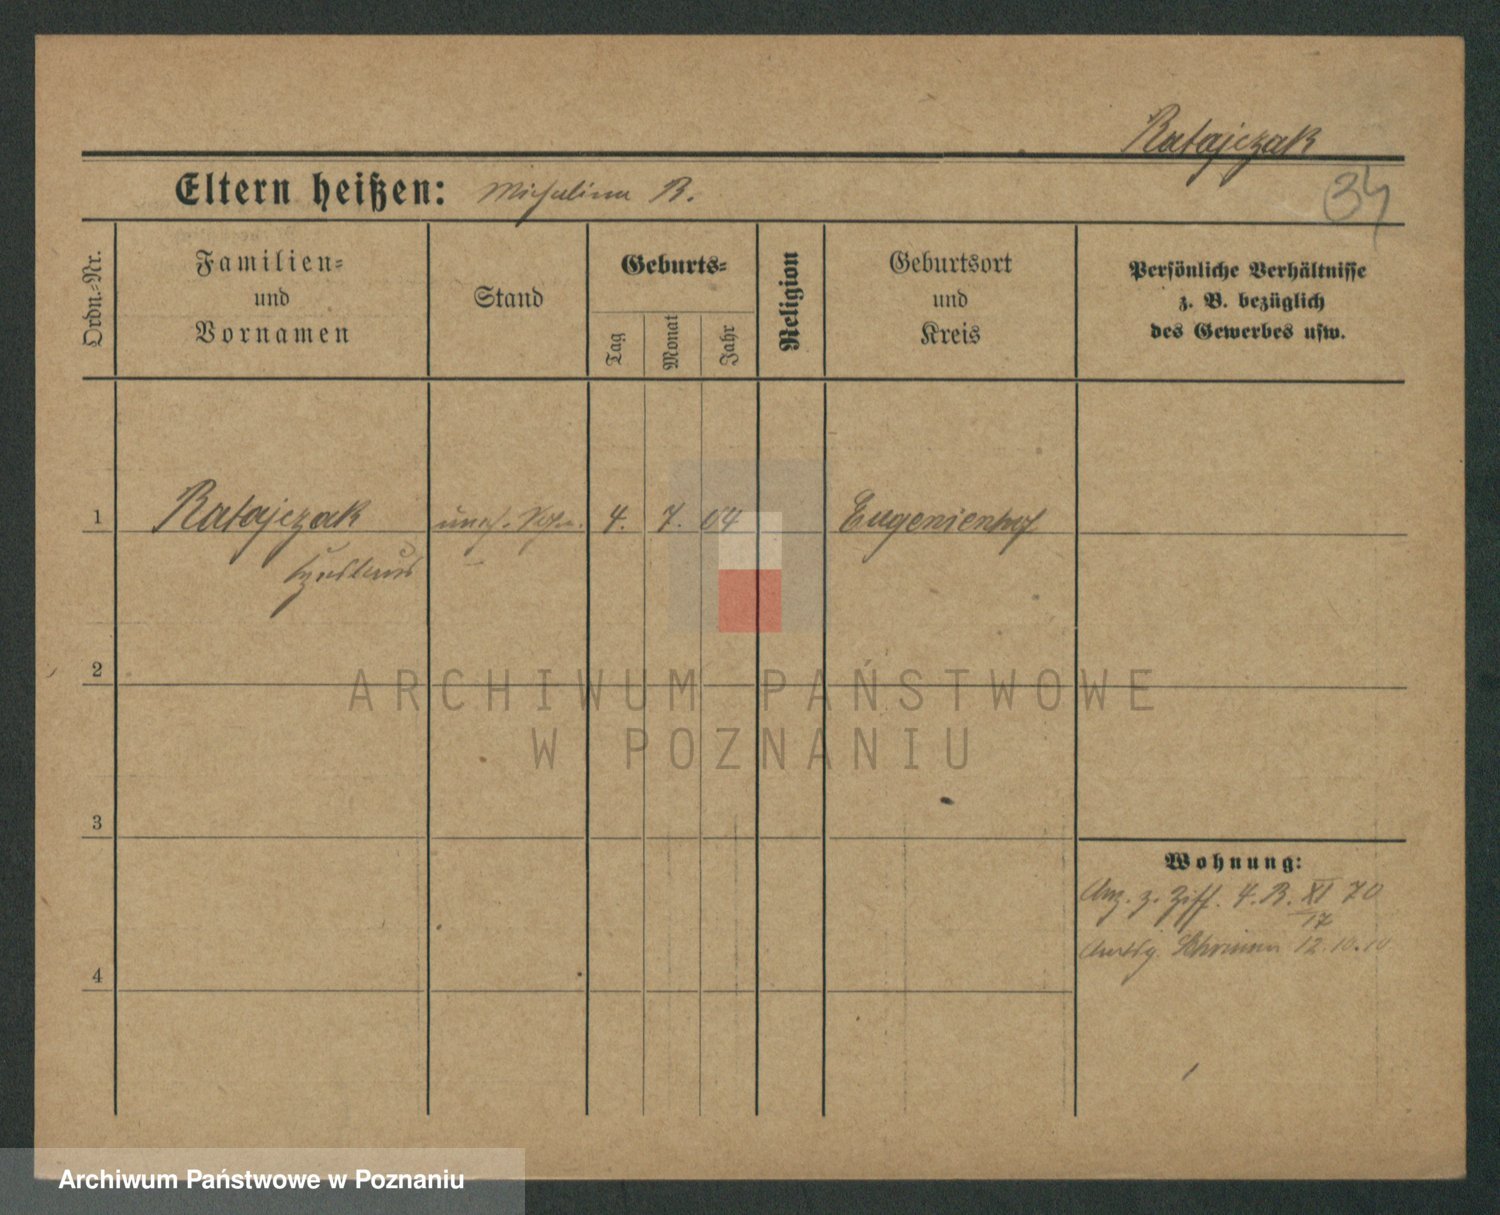 Ratajczak
Eltern heißen: Michalina R.
34
Ordn.-Nr.
Familien-
und
Vornamen
Stand
Geburts-
Tag
Monat
Jahr
Religion
Geburtsort
und
Kreis
Persönliche Verhältnisse
z. B. bezüglich
des Gewerbes usw.
1
Ratajczak
4. 7. 04
Eugenienhof
2
ARCHIWUM PAŃSTWOWE
W POZNANIU
3
Wohnung:
Anz. z. Ziff. 4. B. XI 70
17
4
Schrimm 12.10.10
Archiwum Państwowe w Poznaniu